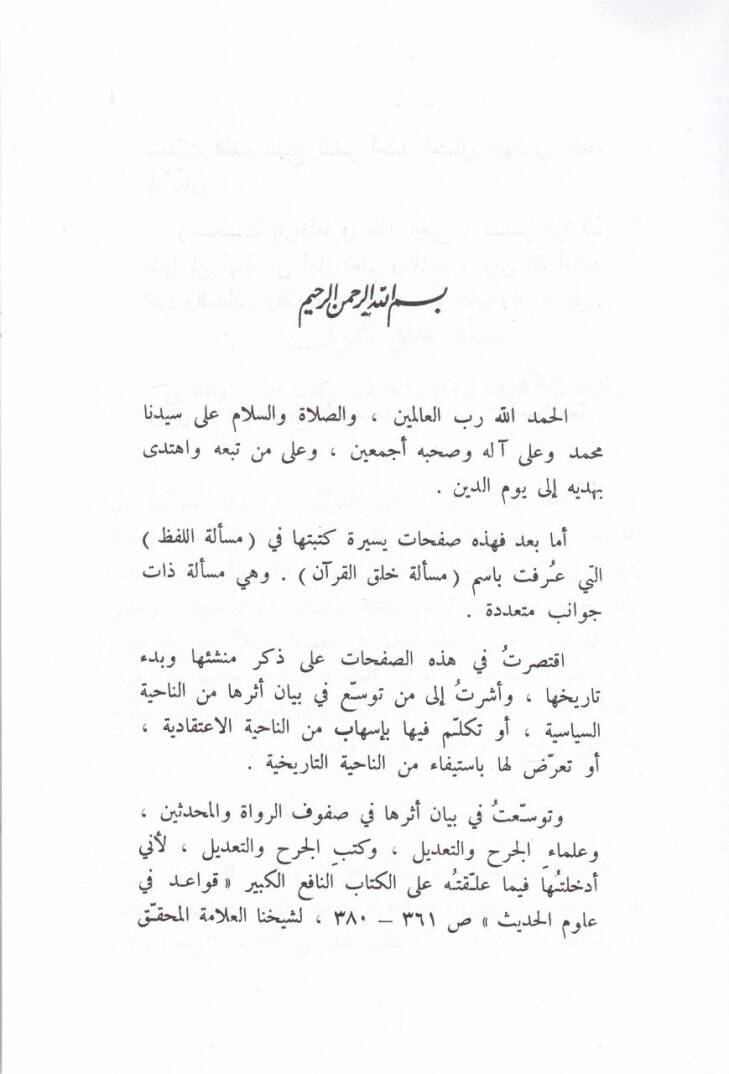 بسم الله الرحمن الرحيم
الحمد لله رب العالمين ، والصلاة والسلام على سيدنا
محمد وعلى آله وصحبه أجمعين ، وعلى من تبعه واهتدى
بهديه إلى يوم الدين .
أما بعد فهذه صفحات يسيرة كتبتها في (مسألة اللفظ)
التي عُرفت باسم (مسألة خلق القرآن) . وهي مسألة ذات
جوانب متعددة .
اقتصرتُ في هذه الصفحات على ذكر منشئها وبدء
تاريخها ، وأشرتُ إلى من توسّع في بيان أثرها من الناحية
السياسية ، أو تكلّم فيها بإسهاب من الناحية الاعتقادية ،
أو تعرّض لها باستيفاء من الناحية التاريخية .
وتوسّعتُ في بيان أثرها في صفوف الرواة والمحدثين ،
وعلماءِ الجرح والتعديل ، وكتبِ الجرح والتعديل ، لأني
أدخلتُها فيما علّقتُه على الكتاب النافع الكبير « قواعد في
علوم الحديث » ص ٣٦١ – ٣٨٠ ، لشيخنا العلامة المحقّق